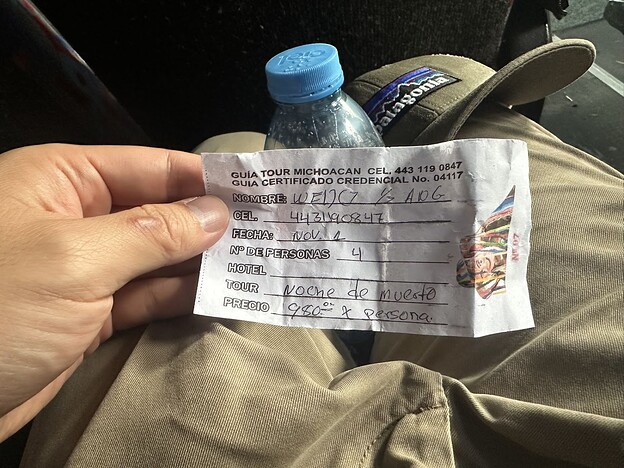 patagonia
GUÍA TOUR MICHOACAN CEL. 443 119 0847
GUIA CERTIFICADO CREDENCIAL No. 04117
NOMBRE:
CEL. 4431190847
FECHA: NOV. 1
Nº DE PERSONAS 4
HOTEL
TOUR Noche de muerto
PRECIO 980.00 x persona.